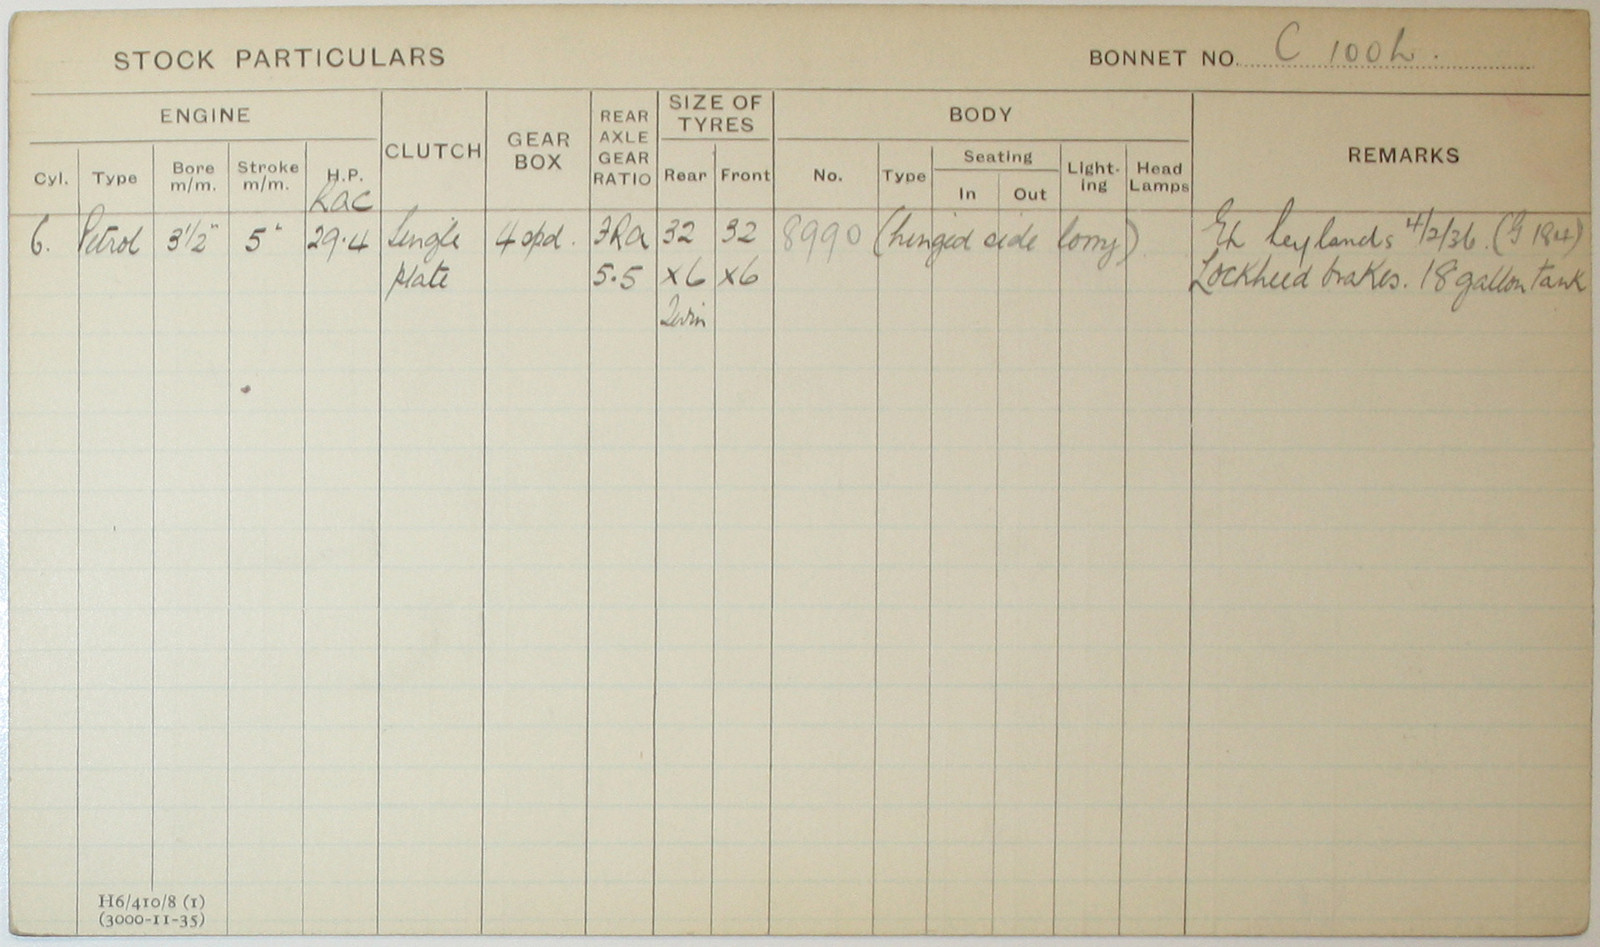 STOCK PARTICULARS
BONNET NO. C 100h.
ENGINE
CLUTCH
GEAR BOX
REAR AXLE GEAR RATIO
SIZE OF TYRES
BODY
REMARKS
Cyl. Type Bore m/m. Stroke m/m. H.P. RAC
Rear Front
No. Type Seating In Out Light-ing Head Lamps
6. Petrol 3½" 5" 29.4 Single 4 spd. FRA 32 32 8990 (hinged side lorry) Ex Leylands 4/2/36. (G 184)
plate 5.5 x6 x6 Lockheed brakes. 18 gallon tank
Twin
H6/410/8 (1)
(3000-11-35)